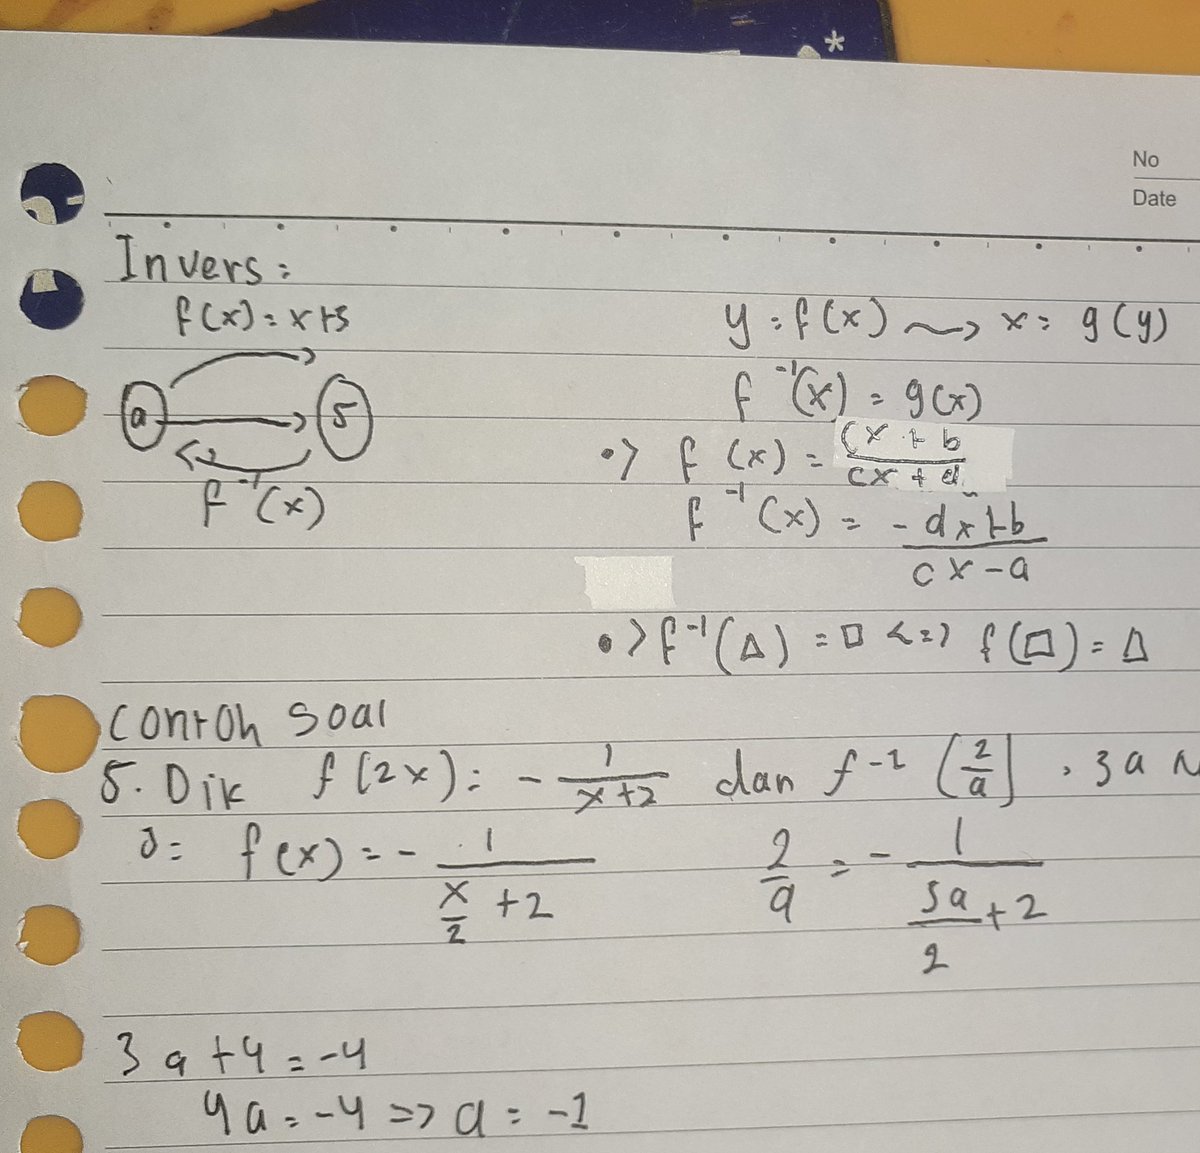 No
Date
Invers :
f(x) = x+5
a 5
f⁻¹(x)
y = f(x) ~> x = g(y)
f⁻¹(x) = g(x)
•> f (x) = (x + b / cx + d
f⁻¹(x) = -dx+b / cx-a
•> f⁻¹(△) = □ <=> f(□) = △
Contoh soal
5. Dik f(2x) = - 1/(x+2) dan f⁻¹ (2/a) , 3a N
J = f(x) = - 1/(x/2 +2) 2/a = - 1/(3a/2 +2)
3a+4 = -4
4a = -4 => a = -1